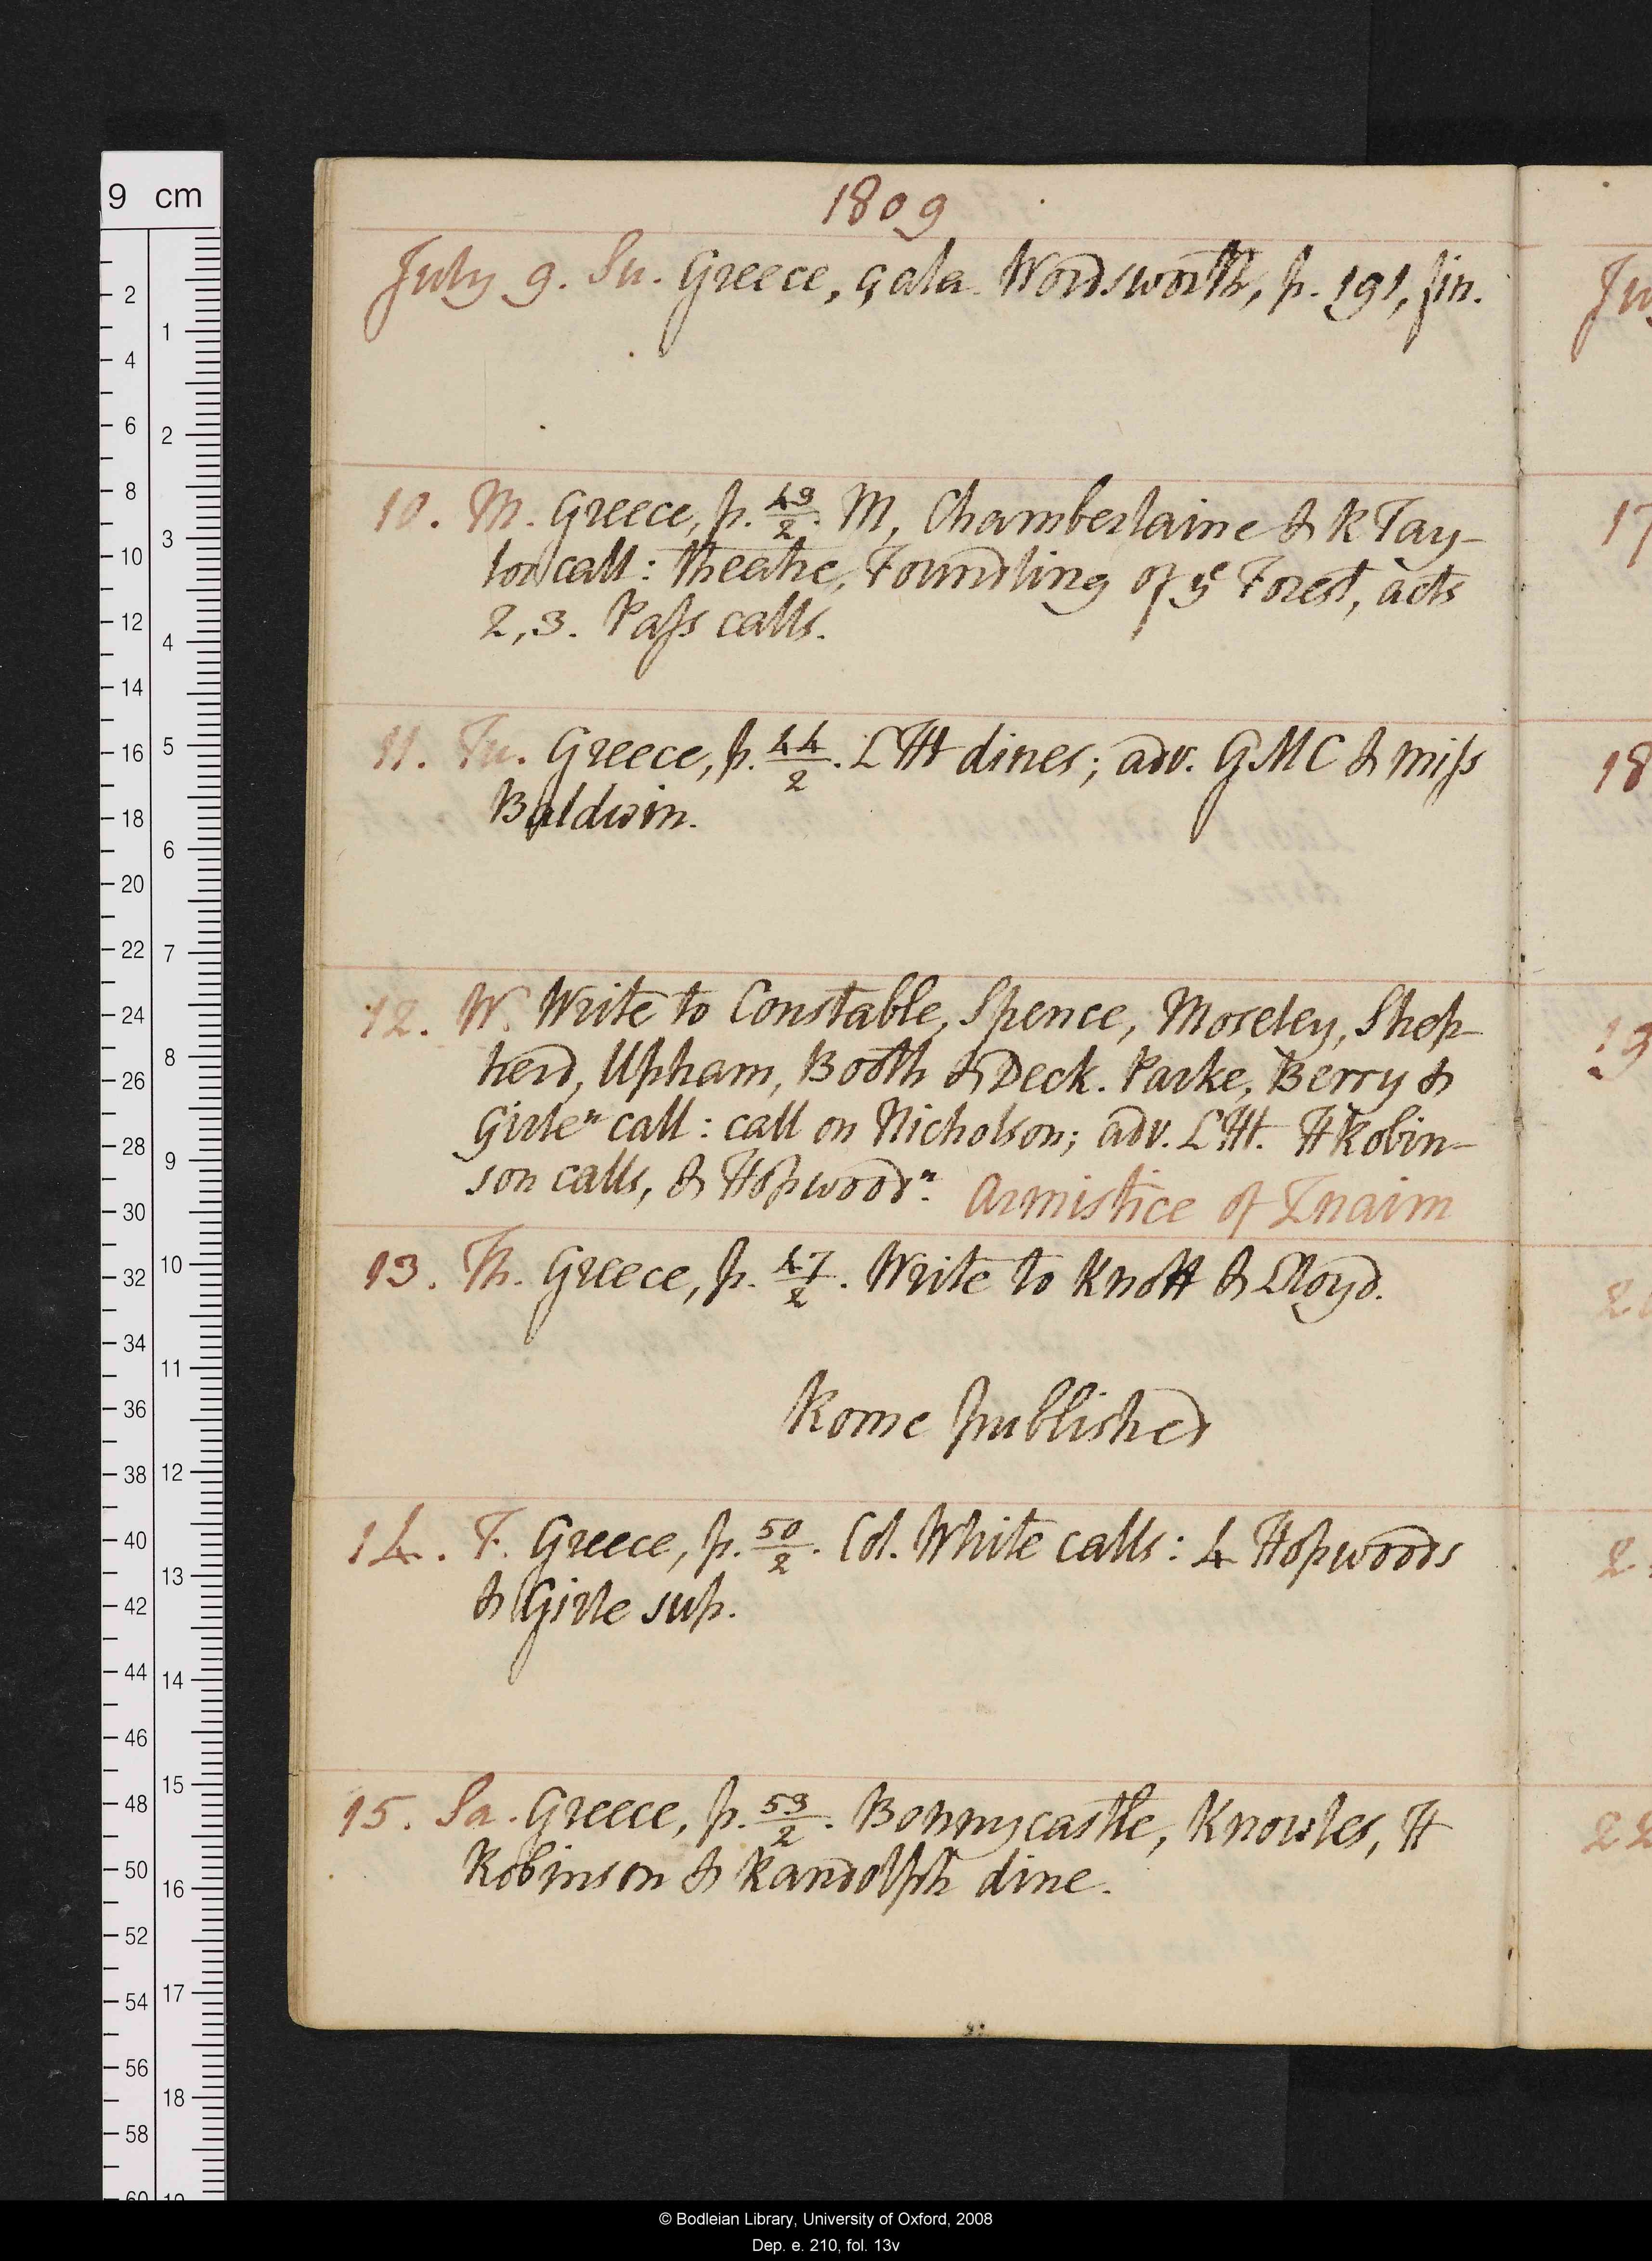 1809
July 9. Su. Greece, çala. Wordsworth, p. 191, fin.
10. M. Greece, p. 43/2. M, Chamberlaine & R Tay-
lor call: theatre, Foundling of yᵉ Forest, acts
2, 3. Pass calls.
11. Tu. Greece, p. 44/2. L Ht dines; adv. GMC & miss
Baldwin.
12. W. Write to Constable, Spence, Moseley, Shep-
herd, Upham, Booth & Deck. Parke, Berry &
Girleⁿ call: call on Nicholson; adv. L Ht. H Robin-
son calls, & Hopwoodⁿ. Armistice of Znaim
13. Th. Greece, p. 47/2. Write to Knott & Lloyd.
Rome published
14. F. Greece, p. 50/2. Col. White calls: 4 Hopwoods
& Girle sup.
15. Sa. Greece, p. 53/2. Bonnycastle, Knowles, H
Robinson & Randolph dine.
9 cm
© Bodleian Library, University of Oxford, 2008
Dep. e. 210, fol. 13v